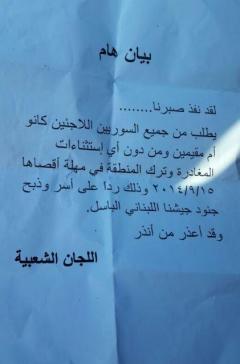 بيان هام
لقد نفذ صبرنا........
يطلب من جميع السوريين اللاجئين كانو
أم مقيمين ومن دون أي إستثناءات
المغادرة وترك المنطقة في مهلة أقصاها
٢٠١٤/٩/١٥ وذلك ردا على أسر وذبح
جنود جيشنا اللبناني الباسل.
وقد أعذر من أنذر
اللجان الشعبية